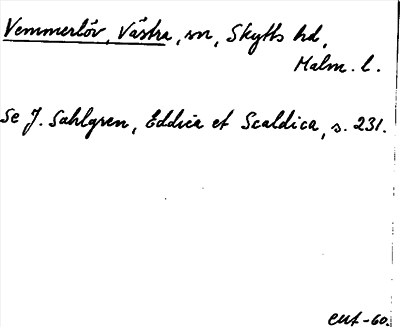 Vemmerlöv, Västra, sn, Skytts hd,
Malm. l.
Se J. Sahlgren, Eddica et Scaldica, s. 231.
-60.